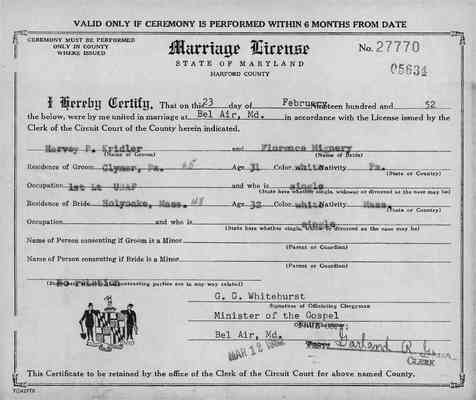 VALID ONLY IF CEREMONY IS PERFORMED WITHIN 6 MONTHS FROM DATE
CEREMONY MUST BE PERFORMED
ONLY IN COUNTY
WHERE ISSUED
Marriage License
No. 27770
STATE OF MARYLAND
05634
HARFORD COUNTY
I Hereby Certify, That on this 23 day of February nineteen hundred and 52
the below, were by me united in marriage at Bel Air, Md. in accordance with the License issued by
Clerk of the Circuit Court of the County herein indicated.
Harvey P. Kridler and Florence Mignery
(Name of Groom) (Name of Bride)
Residence of Groom Clymer, Pa. Age 31 Color white Nativity Pa.
(State or County)
Occupation 1st Lt USAF and who is single
(State here whether single, widower or divorced as the case may be)
Residence of Bride Holyoake, Mass. Age 32 Color white Nativity Mass.
(State or County)
Occupation and who is single
(State here whether single, widow or divorced as the case may be)
Name of Person consenting if Groom is a Minor
(Parent or Guardian)
Name of Person consenting if Bride is a Minor
(Parent or Guardian)
no relation
(State whether contracting parties are in any way related)
G. G. Whitehurst
Signature of Officiating Clergyman
Minister of the Gospel
Bel Air, Md.
MAR 12 1952
Garland R.
CLERK
This Certificate to be retained by the office of the Clerk of the Circuit Court for above named County.